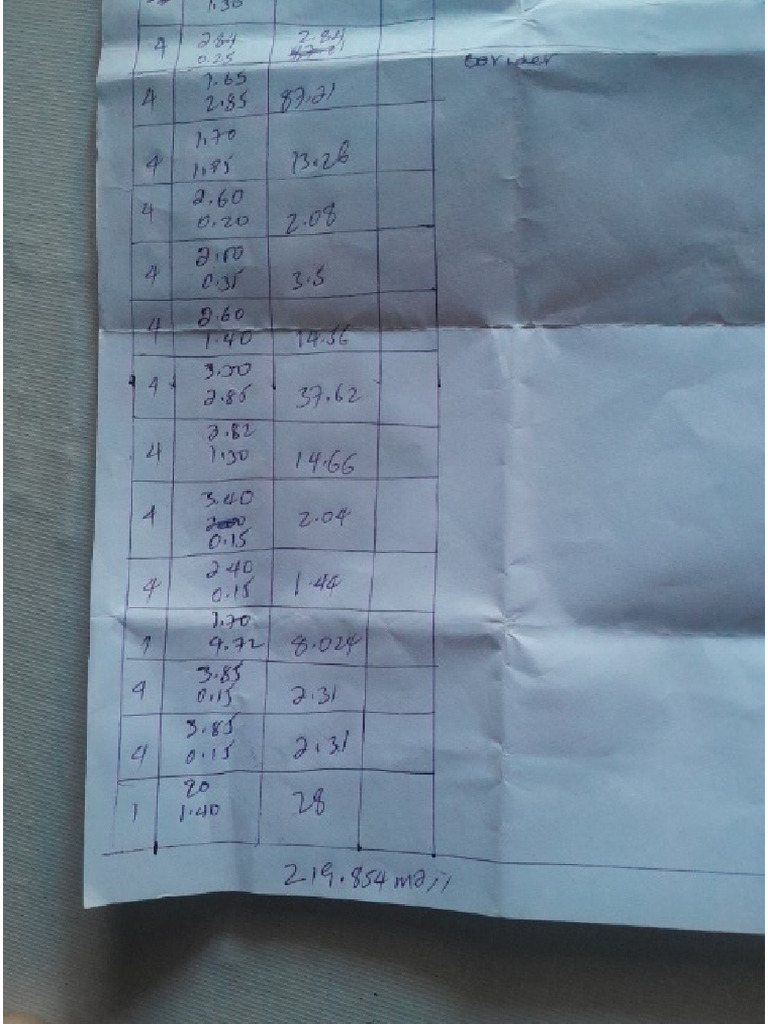 1.30
4 2.84 2.84
0.25
corridor
7.65
4 2.85 87.21
1.70
4 1.95 13.26
2.60
4 0.20 2.08
2.50
4 0.35 3.5
2.60
4 1.40 14.56
3.30
4 2.85 37.62
2.82
4 1.30 14.66
3.40
4 2.04
0.15
2.40
4 0.15 1.44
1.70
1 4.72 8.024
3.85
4 0.15 2.31
3.85
4 0.15 2.31
20
1 1.40 28
219.854